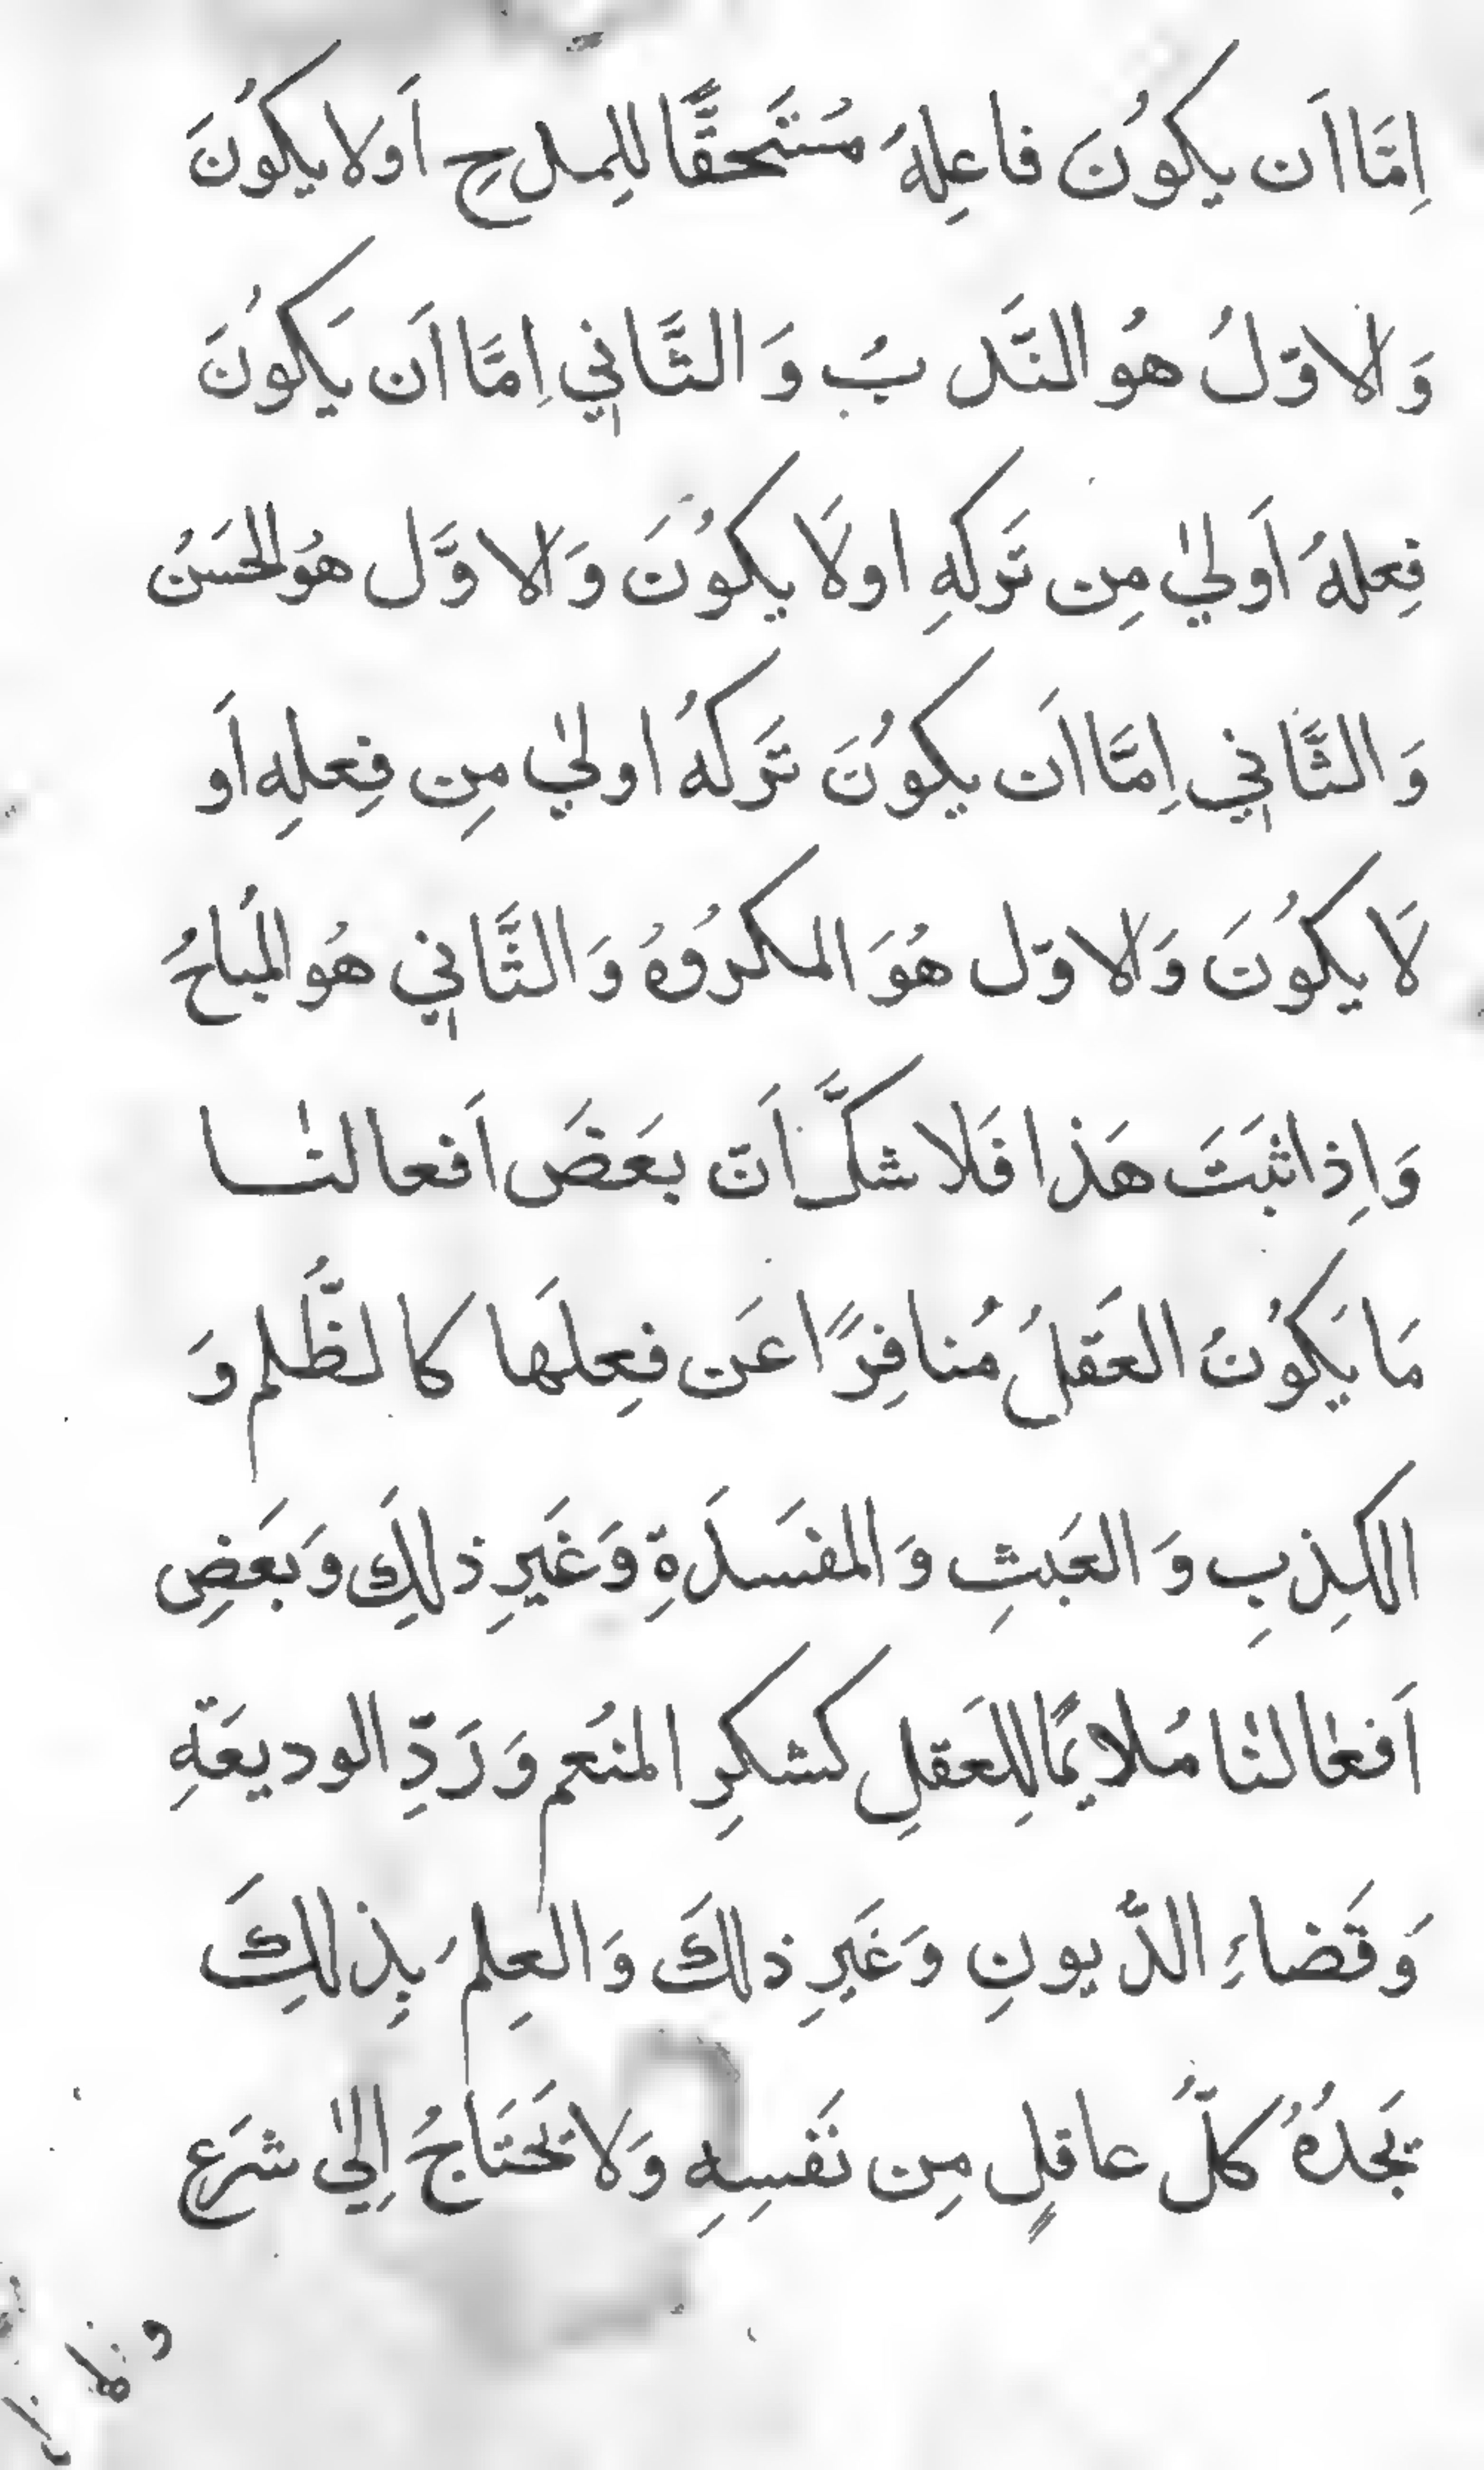 اِمَّا اَن يكوُنَ فاعِلهُ مُستَحقًّا للِمدحِ اَولا يكوُنَ
وَ الاوّلُ هُو النَّدبُ وَ الثَّاني اِمَّا اَن يَكوُنَ
فِعلهُ اَولىٰ مِن تَركهِ اولَا يكوُنَ وَ الاوَّل هُو الحَسَنُ
وَ الثَّاني اِمَّا اَن يكوُنَ تَركهُ اولىٰ مِن فِعلهِ اَو
لَا يكوُنَ وَ الاوّل هُوَ المكروُهُ وَ الثَّاني هُو المُباحُ
وَ اِذا ثبَتَ هَذا فَلا شكَّ اَنّ بعَضَ اَفعالنٰا
مَا يَكوُنُ العَقلُ مُنافِرًا عَن فِعِلهَا كا لظُّلم وَ
الكِذبِ وَ العَبثِ وَ المفسَدَةِ وَغَيرِ ذلِكَ وَبعَضِ
اَفعٰالنٰا مُلايمًا للِعَقلِ كشكرِ المنُعم وَرَدِّ الوديعَةِ
وَقَضاءِ الدُّيونِ وَغَيرِ ذلكَ وَ العِلمَ بِذلِكَ
يَجدُهُ كلُّ عاقلٍ مِن نَفسِهِ وَلا تَحتَاجُ اِلىٰ شرَعٍ